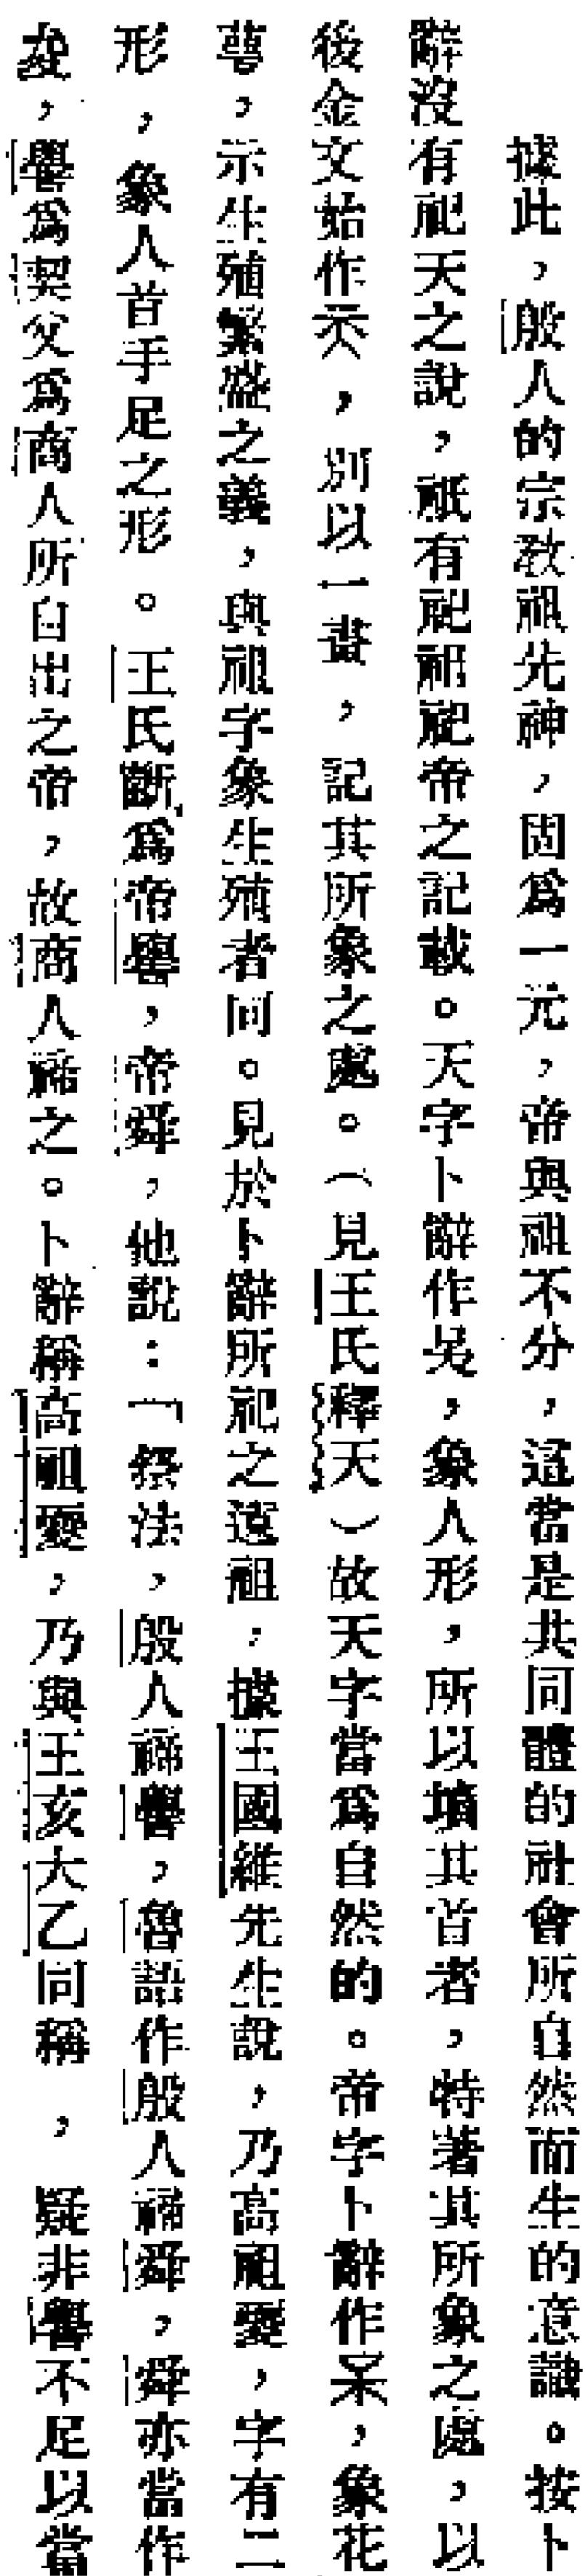 據此，殷人的宗教祖先神，固爲一元，帝與祖不分，這當是共同體的社會所自然而生的意識。按卜
辭沒有祀天之說，祇有祀祖祀帝之記載。天字卜辭作吴，象人形，所以墳其首者，特著其所象之處，以
後金文始作兲，別以一畫，記其所象之處。（見王氏釋天）故天字當爲自然的。帝字卜辭作，象花
萼，示生殖繁盛之義，與祖字象生殖者同。見於卜辭所祀之遠祖，據王國維先生說，乃高祖夒，字有二
形，象人首手足之形。王氏斷爲帝嚳，帝舜，他說：「祭法，殷人禘嚳，魯語作殷人禘舜，舜亦當作
夋，嚳爲契父爲商人所自出之帝，故商人禘之。卜辭稱高祖夒，乃與王亥大乙同稱，疑非嚳不足以當